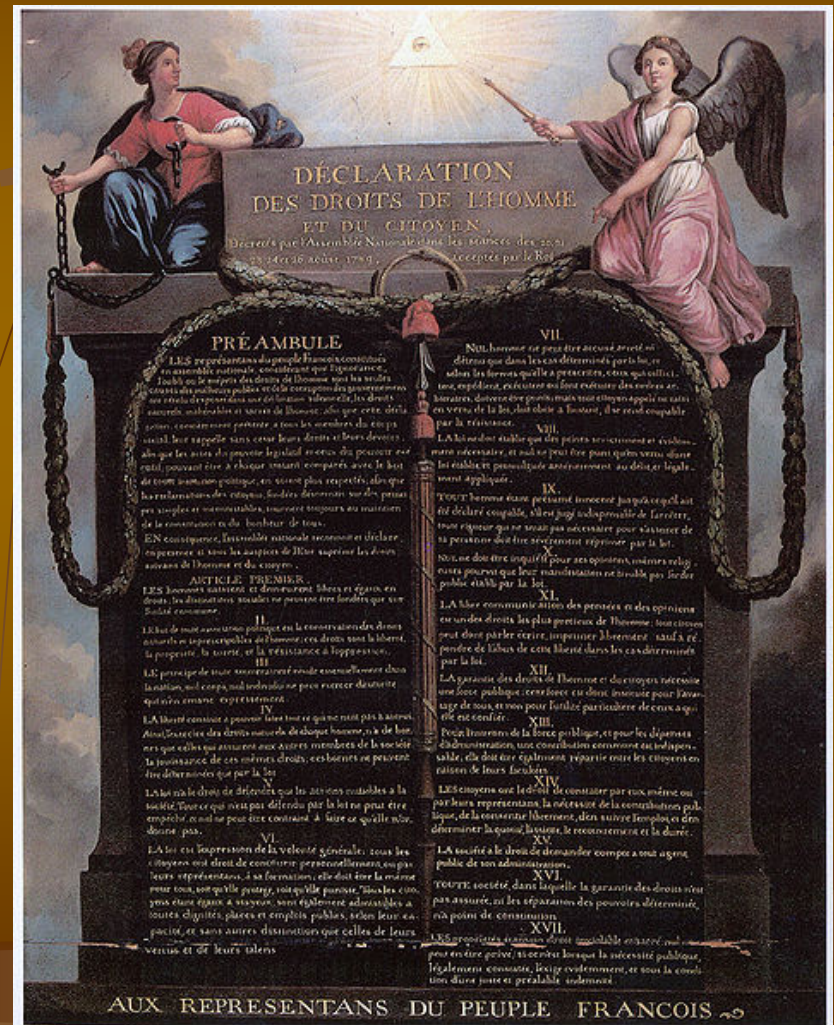 DÉCLARATION
DES DROITS DE L'HOMME
ET DU CITOYEN,
Décretés par l'Assemblée Nationale dans les séances des 20, 21
23 24 et 26 août 1789, acceptés par le Roi
PRÉAMBULE
LES représentans du peuple François constitués
en assemblée nationale, considérant que l'ignorance,
l'oubli ou le mépris des droits de l'homme sont les seules
causes des malheurs publics et de la corruption des gouvernemens
ont résolu d'exposer dans une déclaration solemnelle, les droits
naturels, inaliénables et sacrés de l'homme; afin que cette décla
ration, constamment présente a tous les membres du corps
social, leur rappelle sans cesse leurs droits et leurs devoirs;
afin que les actes du pouvoir législatif et ceux du pouvoir exé
cutif, pouvant être à chaque instant comparés avec le but
de toute institution politique, en soient plus respectés; afin que
les réclamations des citoyens, fondées désormais sur des princi
pes simples et incontestables, tournent toujours au maintien
de la constitution et du bonheur de tous.
EN conséquence, l'assemblée nationale reconnoit et déclare
en présence et sous les auspices de l'Etre suprême les droits
suivans de l'homme et du citoyen.
ARTICLE PREMIER.
LES hommes naissent et demeurent libres et égaux en
droits; les distinctions sociales ne peuvent être fondées que sur
l'utilité commune.
II.
LE but de toute association politique est la conservation des droits
naturels et imprescriptibles de l'homme; ces droits sont la liberté,
la propriété, la sureté, et la résistance à l'oppression.
III
LE principe de toute souveraineté réside essentiellement dans
la nation, nul corps, nul individu ne peut exercer d'autorité
qui n'en émane expressement.
IV
LA liberté consiste a pouvoir faire tout ce qui ne nuit pas à autrui
Ainsi, l'exercice des droits naturels de chaque homme, n'a de bor
nes que celles qui assurent aux autres membres de la société
la jouissance de ces mêmes droits; ces bornes ne peuvent
être déterminées que par la loi
V
LA loi n'a le droit de défendre que les actions nuisibles a la
société. Tout ce qui n'est pas défendu par la loi ne peut être
empêché, et nul ne peut être contraint à faire ce qu'elle n'or
donne pas.
VI.
LA loi est l'expression de la volonté générale; tous les
citoyens ont droit de concourir personnellement, ou par
leurs représentans, à sa formation; elle doit être la même
pour tous, soit qu'elle protege, soit qu'elle punisse. Tous les cito
yens étant égaux à ses yeux, sont également admissibles a
toutes dignités, places et emplois publics, selon leur ca
pacité, et sans autres distinction que celles de leurs
vertus et de leurs talens
VII.
NUL homme ne peut être accusé, arreté ni
détenu que dans les cas déterminés par la loi, et
selon les formes qu'elle a prescrites, ceux qui sollici
tent, expédient, exécutent ou font exécuter des ordres ar
bitraires, doivent être punis; mais tout citoyen appelé ou saisi
en vertu de la loi, doit obéir a l'instant, il se rend coupable
par la résistance.
VIII.
LA loi ne doit établir que des peines strictement et évidem
ment nécessaire, et nul ne peut être puni qu'en vertu d'une
loi établie et promulguée antérieurement au délit, et légale
ment appliquée.
IX.
TOUT homme étant présumé innocent jusqu'à ce qu'il ait
été déclaré coupable, s'il est jugé indispensable de l'arrêter,
toute rigueur qui ne serait pas nécessaire pour s'assurer de
sa personne doit être sévèrement réprimée par la loi.
X.
NUL ne doit être inquiété pour ses opinions, mêmes religi
euses pourvu que leur manifestation ne trouble pas l'ordre
public établi par la loi.
XI.
LA libre communication des pensées et des opinions
est un des droits les plus precieux de l'homme; tout citoyen
peut donc parler écrire, imprimer librement sauf a ré
pondre de l'abus de cette liberté dans les cas déterminés
par la loi.
XII.
LA garantie des droits de l'homme et du citoyen nécessite
une force publique; cette force est donc instituée pour l'avan
tage de tous, et non pour l'utilité particulière de ceux a qui
elle est confiée.
XIII.
Pour l'entretien de la force publique, et pour les dépenses
d'administration, une contribution commune est indispen
sable; elle doit être également répartie entre les citoyens en
raison de leurs facultées
XIV
LES citoyens ont le droit de constater par eux même ou
par leurs représentans, la nécessité de la contribution pub
lique, de la consentir librement, d'en suivre l'emploi, et d'en
déterminer la quotité, l'assiete, le recouvrement et la durée.
XV
LA société a le droit de demander compte a tout agent
public de son administration.
XVI.
TOUTE société, dans laquelle la garantie des droits n'est
pas assurée, ni les séparation des pouvoirs déterminée,
n'a point de constitution
XVII.
LES propriétés étant un droit inviolable et sacré, nul ne
peut en être privé, si ce n'est lorsque la nécessité publique,
légalement constatée, l'exige evidemment, et sous la condi
tion d'une juste et préalable indemnité.
AUX REPRESENTANS DU PEUPLE FRANCOIS